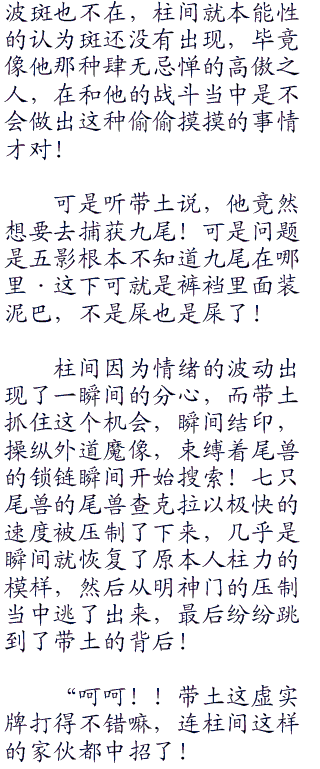 波斑也不在，柱间就本能性
的认为斑还没有出现，毕竟
像他那种肆无忌惮的高傲之
人，在和他的战斗当中是不
会做出这种偷偷摸摸的事情
才对！
可是听带土说，他竟然
想要去捕获九尾！可是问题
是五影根本不知道九尾在哪
里·这下可就是裤裆里面装
泥巴，不是屎也是屎了！
柱间因为情绪的波动出
现了一瞬间的分心，而带土
抓住这个机会，瞬间结印，
操纵外道魔像，束缚着尾兽
的锁链瞬间开始搜索！七只
尾兽的尾兽查克拉以极快的
速度被压制了下来，几乎是
瞬间就恢复了原本人柱力的
模样，然后从明神门的压制
当中逃了出来，最后纷纷跳
到了带土的背后！
“呵呵！！带土这虚实
牌打得不错嘛，连柱间这样
的家伙都中招了！